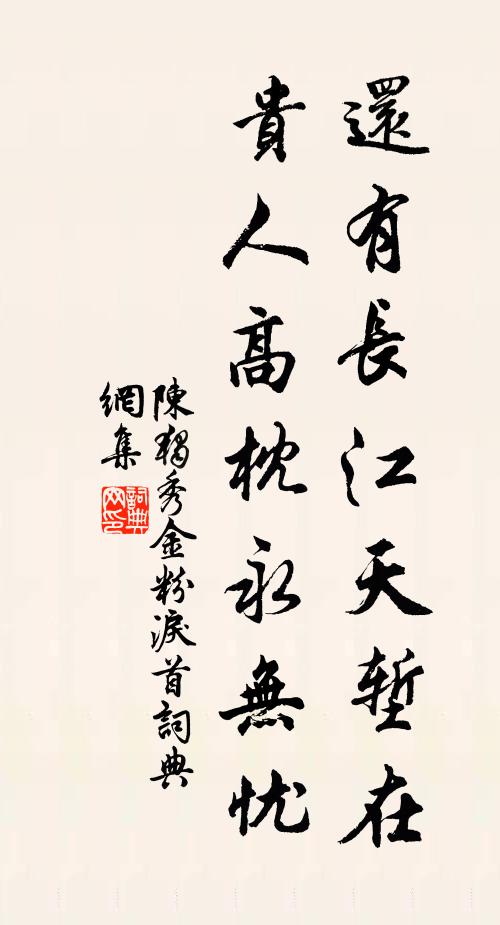 還有長江天塹在
貴人高枕永無忧
陳獨秀金粉淚首詞典
網集
詞典网印